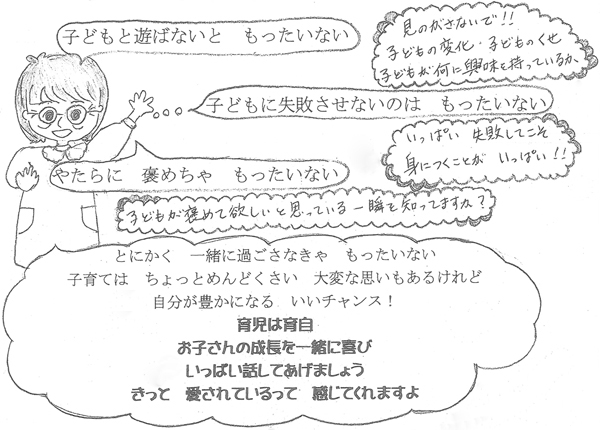 子どもと遊ばないと　もったいない
見のがさないで!!
子どもの変化・子どものくせ
子どもが何に興味を持っているか
子どもに失敗させないのは　もったいない
いっぱい 失敗してこそ
身につくことが いっぱい!!
やたらに　褒めちゃ　もったいない
子どもが褒めて欲しいと思っている一瞬を知ってますか?
とにかく　一緒に過ごさなきゃ　もったいない
子育ては　ちょっとめんどくさい　大変な思いもあるけれど
自分が豊かになる　いいチャンス！
育児は育自
お子さんの成長を一緒に喜び
いっぱい話してあげましょう
きっと　愛されているって　感じてくれますよ